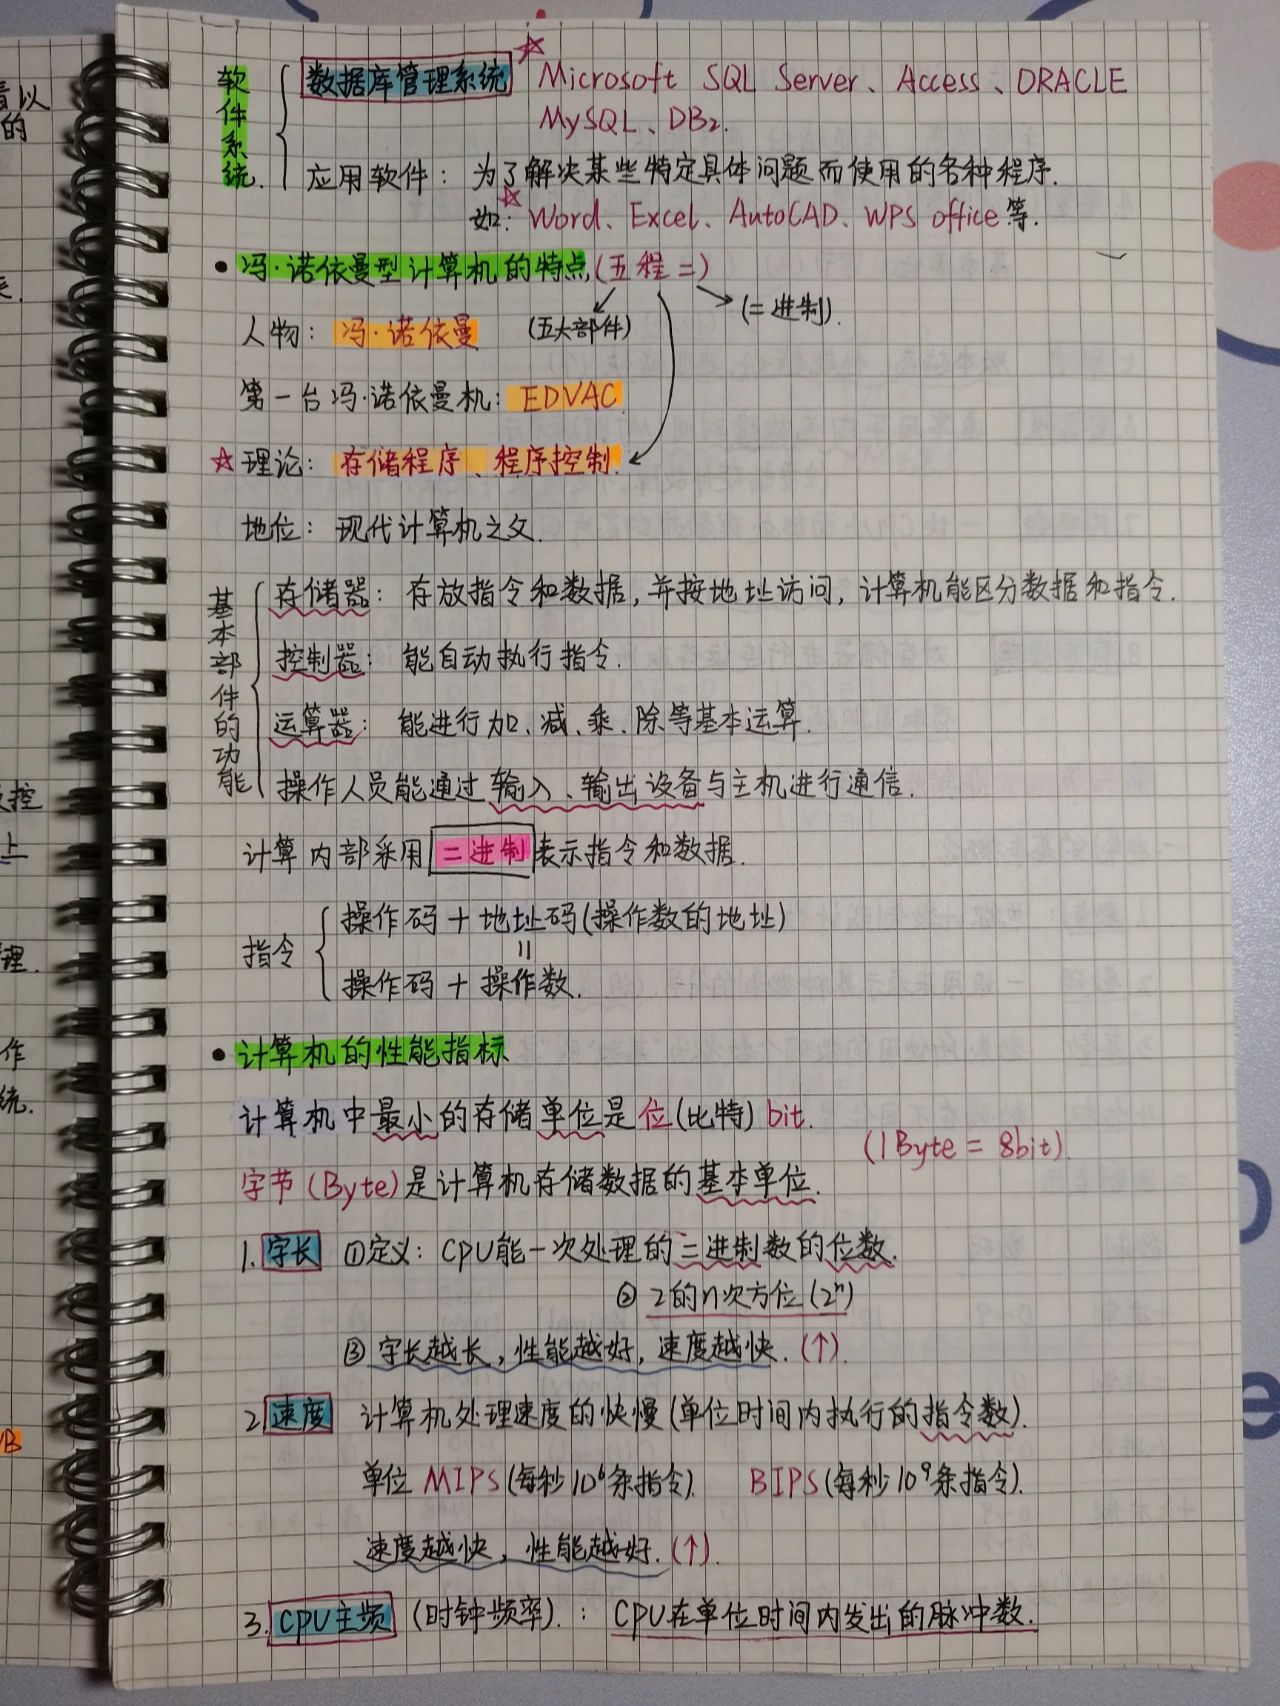 软件系统
数据库管理系统 ☆ Microsoft SQL Server、Access、ORACLE
MySQL、DB2.
应用软件：为了解决某些特定具体问题而使用的各种程序.
如：☆Word、Excel、AutoCAD、WPS office等.
• 冯·诺依曼型计算机的特点(五程二)
人物：冯·诺依曼 (五大部件) (二进制).
第一台冯·诺依曼机：EDVAC
☆理论：存储程序、程序控制.
地位：现代计算机之父.
基本部件的功能
存储器：存放指令和数据，并按地址访问，计算机能区分数据和指令.
控制器：能自动执行指令.
运算器：能进行加、减、乘、除等基本运算.
操作人员能通过输入、输出设备与主机进行通信.
计算内部采用二进制表示指令和数据.
指令
操作码 + 地址码(操作数的地址)
=
操作码 + 操作数.
• 计算机的性能指标
计算机中最小的存储单位是位(比特) bit.
(1Byte = 8bit).
字节(Byte)是计算机存储数据的基本单位.
1. 字长 ①定义：CPU能一次处理的二进制数的位数.
② 2的n次方位(2ⁿ)
③ 字长越长，性能越好，速度越快.(↑).
2. 速度 计算机处理速度的快慢(单位时间内执行的指令数).
单位 MIPS(每秒10⁶条指令). BIPS(每秒10⁹条指令).
速度越快，性能越好.(↑).
3. CPU主频(时钟频率)：CPU在单位时间内发出的脉冲数.